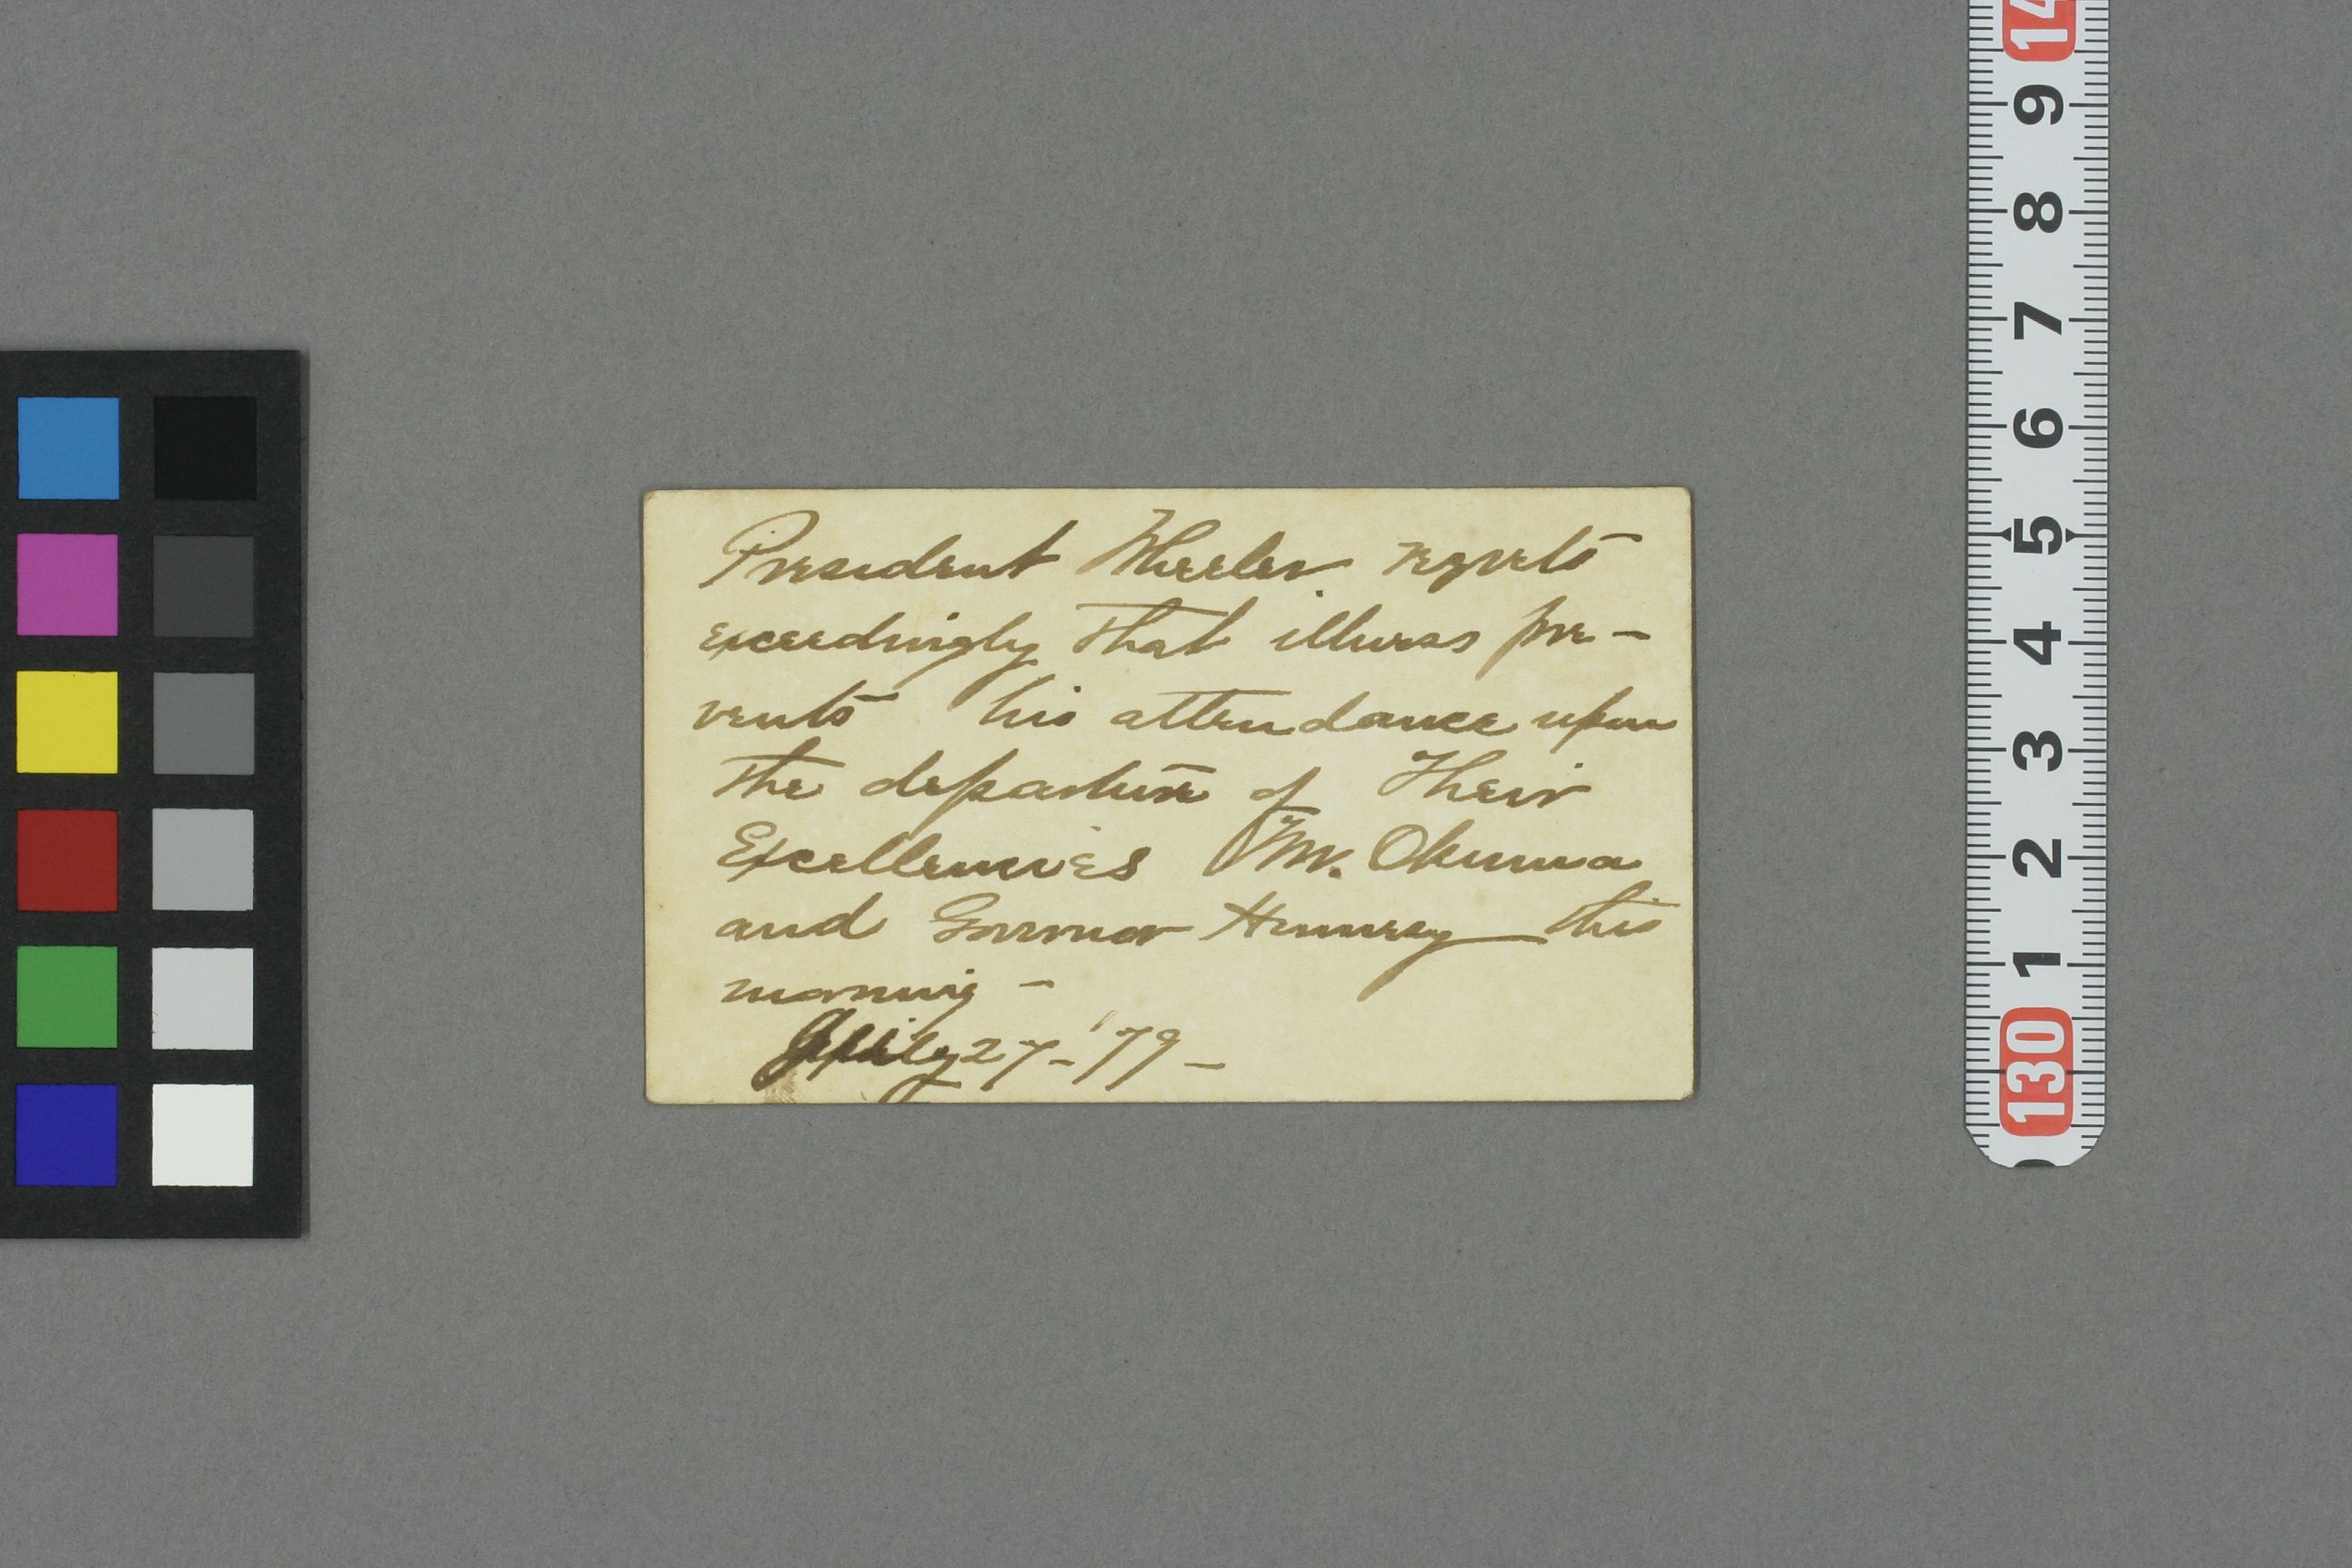 President Wheeler regrets
exceedingly that illness pre-
vents his attendance upon
the departure of Their
Excellencies Mr. Okuma
and Governor Hennessy this
morning -
27 - '79 -
14
9
8
7
6
5
4
3
2
1
130